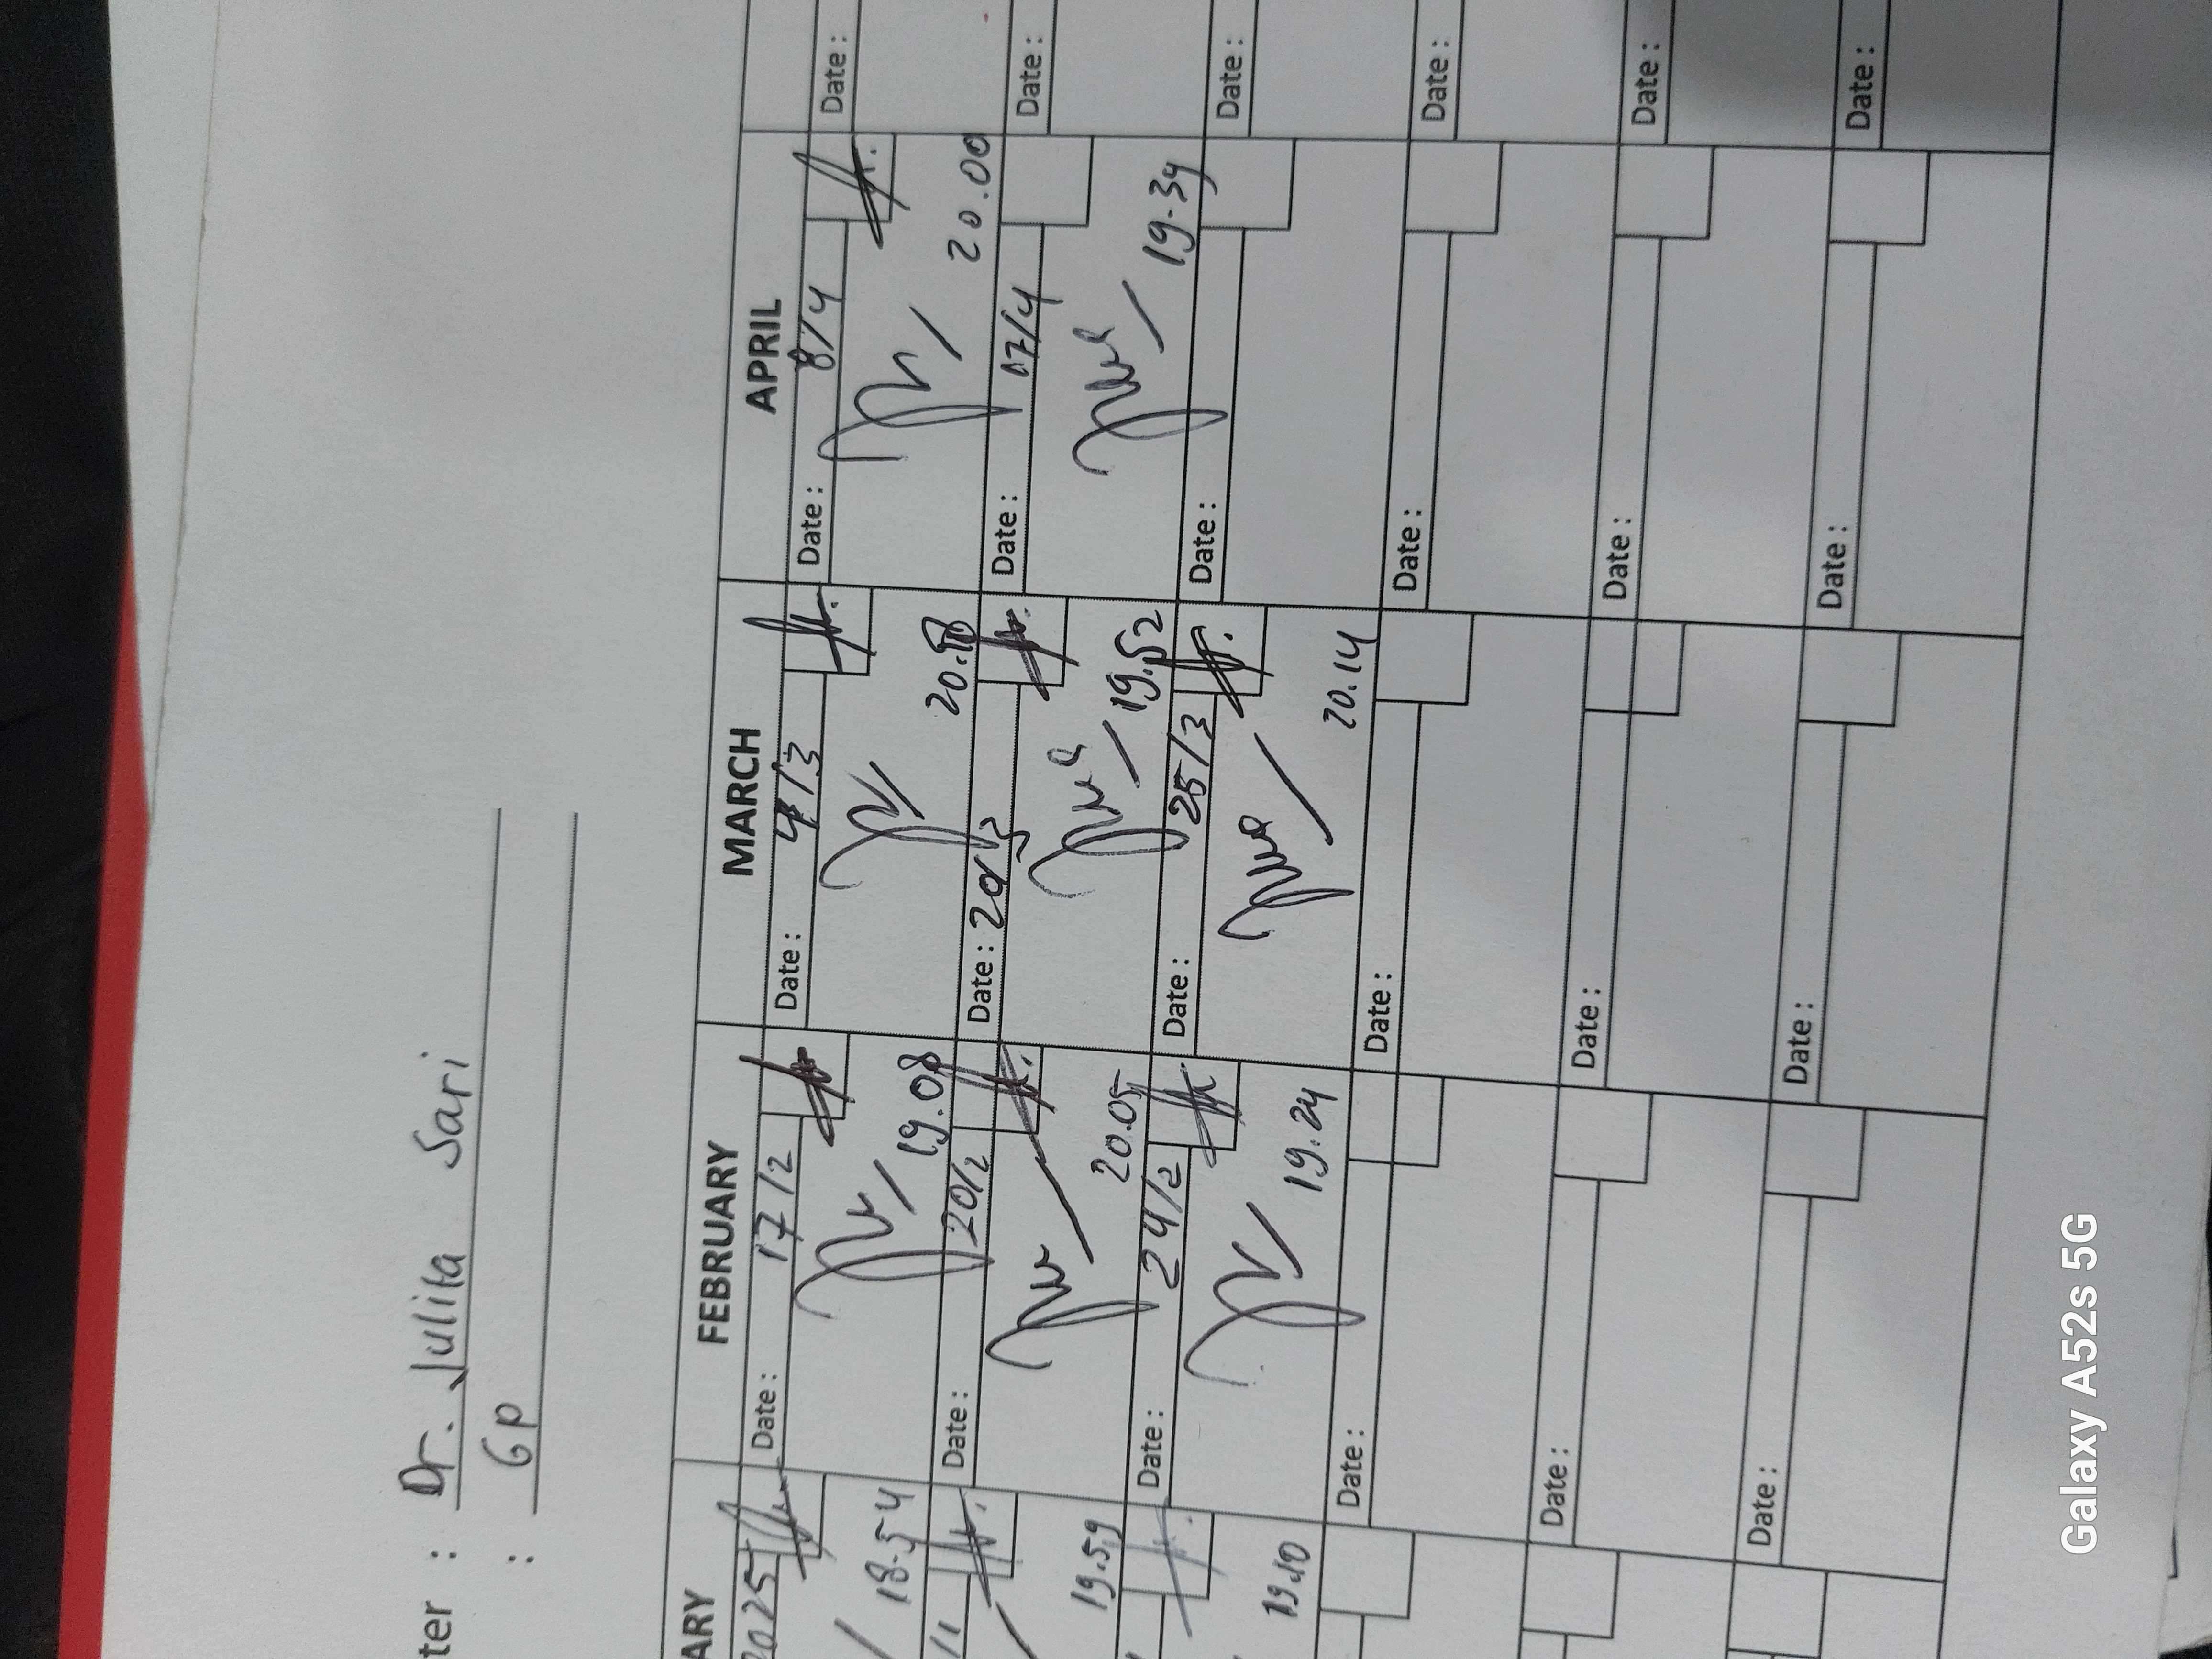 ter : Dr. Julita Sari
: GP
ARY FEBRUARY MARCH APRIL
2025 Date : 17/2 Date : 4/3 Date : 8/4 Date :
18.54 19.08 20.00
Date : 20/2 Date : 20/3 Date : 17/4 Date :
19.59 20.05 19.52 19.34
Date : 24/2 Date : 25/3 Date : Date :
19.10 19.24 20.14
Date : Date : Date : Date :
Date : Date : Date : Date :
Date : Date : Date : Date :
Galaxy A52s 5G